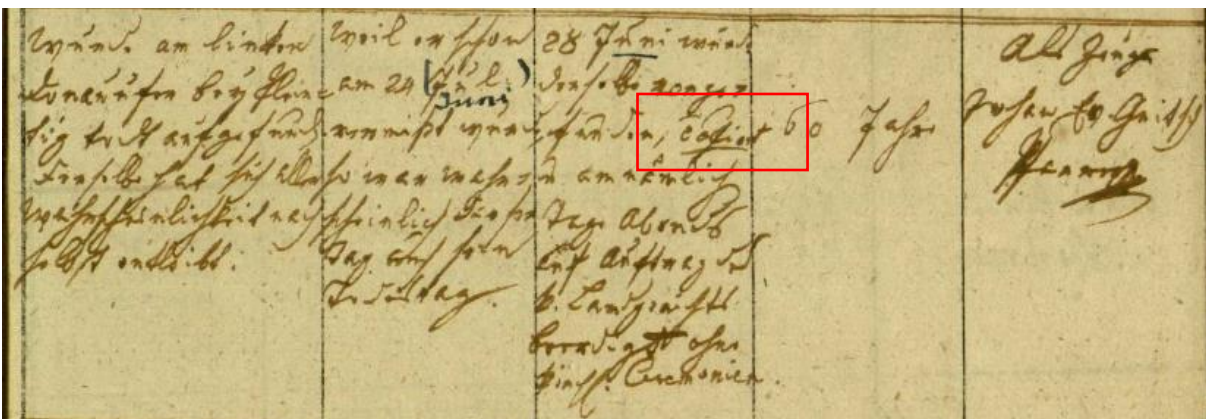 Wurde am linken
Donauufer bey Plein-
tig todt aufgefund.
Derselbe hat sich aller
Wahrscheinlichkeit nach
selbst entleibt.
Weil er schon
am 24 (Juli)
Juni
vermißt wurd
so war wahr-
scheinlich dieser
Tag auch sein
Todestag.
28 Juni wurde
derselbe
funden,
u am nämlich
Tage Abends
auf Auftrag des
k. Landgerichts
beerdigt ohne
kirchl. Ceremonien.
60 Jahre
Als Zeuge
Johan Ev
Pfarrer